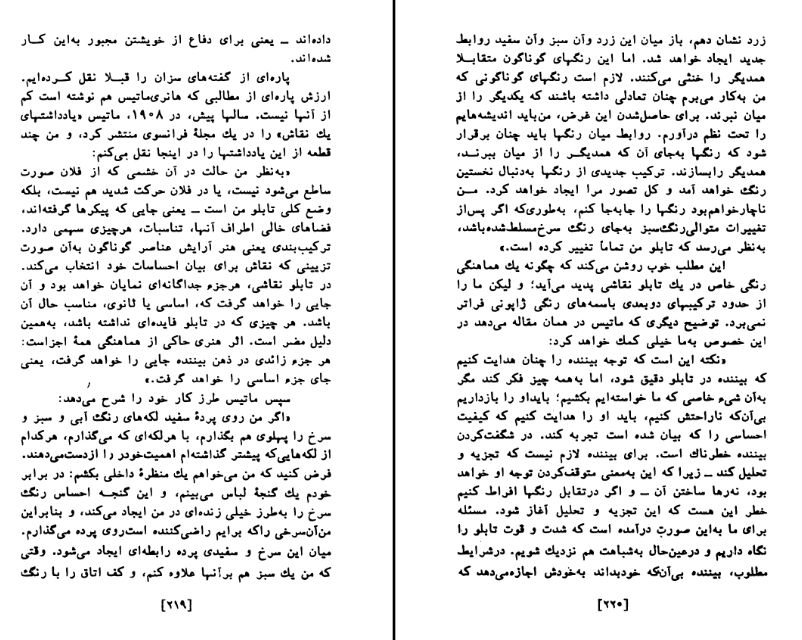 داده‌اند ــ یعنی برای دفاع از خویشتن مجبور به‌این کار
شده‌اند.
پاره‌ای از گفته‌های سزان را قبلا نقل کرده‌ایم.
ارزش پاره‌ای از مطالبی که هانری‌ماتیس هم نوشته است کم
از آنها نیست. سالها پیش، در ۱۹۰۸، ماتیس «یادداشتهای
یك نقاش» را در یك مجلهٔ فرانسوی منتشر کرد، و من چند
قطعه از این یادداشتها را در اینجا نقل می‌کنم:
«به‌نظر من حالت در آن خشمی که از فلان صورت
ساطع می‌شود نیست، یا در فلان حرکت شدید هم نیست، بلکه
وضع کلی تابلو من است ــ یعنی جایی که پیکرها گرفته‌اند،
فضاهای خالی اطراف آنها، تناسبات، هرچیزی سهمی دارد.
ترکیب‌بندی یعنی هنر آرایش عناصر گوناگون به‌آن صورت
تزیینی که نقاش برای بیان احساسات خود انتخاب می‌کند.
در تابلو نقاشی، هرجزء جداگانه‌ای نمایان خواهد بود و آن
جایی را خواهد گرفت که، اساسی یا ثانوی، مناسب حال آن
باشد. هر چیزی که در تابلو فایده‌ای نداشته باشد، به‌همین
دلیل مضر است. اثر هنری حاکی از هماهنگی همهٔ اجزاست:
هر جزء زائدی در ذهن بیننده جایی را خواهد گرفت، یعنی
جای جزء اساسی را خواهد گرفت.»
سپس ماتیس طرز کار خود را شرح می‌دهد:
«اگر من روی پردهٔ سفید لکه‌های رنگ آبی و سبز و
سرخ را پهلوی هم بگذارم، با هرلکه‌ای که می‌گذارم، هرکدام
از لکه‌هایی‌که پیشتر گذاشته‌ام اهمیت‌خودر را ازدست‌می‌دهند.
فرض کنید که من می‌خواهم یك منظرهٔ داخلی بکشم: در برابر
خودم یك گنجهٔ لباس می‌بینم، و این گنجه احساس رنگ
سرخ را به‌طرز خیلی زنده‌ای در من ایجاد می‌کند، و بنابراین
من‌آن‌سرخی راکه برایم راضی‌کننده است‌روی پرده می‌گذارم.
میان این سرخ و سفیدی پرده رابطه‌ای ایجاد می‌شود. وقتی
که من یك سبز هم برآنها علاوه کنم، و کف اتاق را با رنگ
[۲۱۹]
زرد نشان دهم، باز میان این زرد وآن سبز وآن سفید روابط
جدید ایجاد خواهد شد. اما این رنگهای گوناگون متقابلا
همدیگر را خنثی می‌کنند. لازم است رنگهای گوناگونی که
من به‌کار می‌برم چنان تعادلی داشته باشند که یکدیگر را از
میان نبرند. برای حاصل‌شدن این غرض، من‌باید اندیشه‌هایم
را تحت نظم درآورم. روابط میان رنگها باید چنان برقرار
شود که رنگها به‌جای آن که همدیگر را از میان ببرند،
همدیگر رابسازند. ترکیب جدیدی از رنگها به‌دنبال نخستین
رنگ خواهد آمد و کل تصور مرا ایجاد خواهد کرد. من
ناچارخواهم‌بود رنگها را جابه‌جا کنم، به‌طوری‌که اگر پس‌از
تغییرات متوالی‌رنگ‌سبز به‌جای رنگ سرخ‌مسلط‌شده‌باشد،
به‌نظر می‌رسد که تابلو من تماماً تغییر کرده است.»
این مطلب خوب روشن می‌کند که چگونه یك هماهنگی
رنگی خاص در یك تابلو نقاشی پدید می‌آید؛ و لیکن ما را
از حدود ترکیبهای دوبعدی باسمه‌های رنگی ژاپونی فراتر
نمی‌برد. توضیح دیگری که ماتیس در همان مقاله می‌دهد در
این خصوص به‌ما خیلی کمك خواهد کرد:
«نکته این است که توجه بیننده را چنان هدایت کنیم
که بیننده در تابلو دقیق شود، اما به‌همه چیز فکر کند مگر
به‌آن شیء خاصی که ما خواسته‌ایم بکشیم؛ بایداو را بازداریم
بی‌آن‌که ناراحتش کنیم، باید او را هدایت کنیم که کیفیت
احساسی را که بیان شده است تجربه کند. در شگفت‌کردن
بیننده خطرناك است. برای بیننده لازم نیست که تجزیه و
تحلیل کند ــ زیرا که این به‌معنی متوقف‌کردن توجه او خواهد
بود، نه‌رها ساختن آن ــ و اگر درتقابل رنگها افراط کنیم
خطر این هست که این تجزیه و تحلیل آغاز شود. مسئله
برای ما به‌این صورت درآمده است که شدت و قوت تابلو را
نگاه داریم و درعین‌حال به‌شباهت هم نزدیك شویم. درشرایط
مطلوب، بیننده بی‌آن‌که خودبداند به‌خودش اجازه‌می‌دهد که
[۲۲۰]